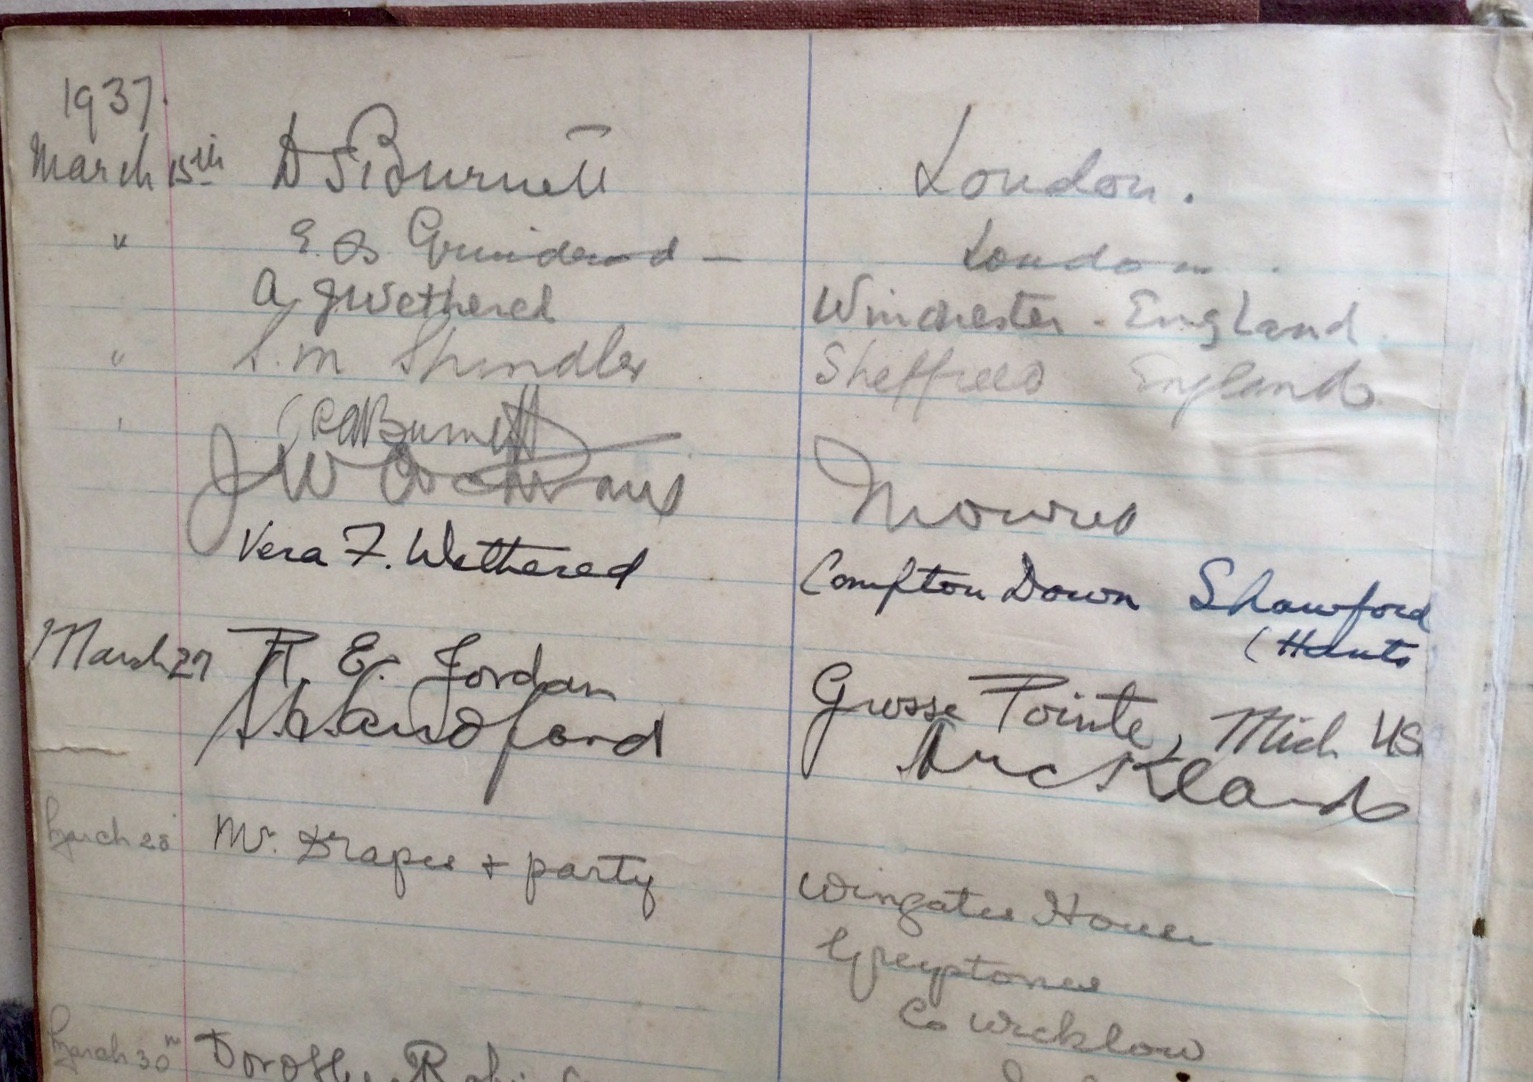 1937
March 15th D S Burnett London.
" E. B. London.
A. J Wethered Winchester. England.
" S. M Spindler Sheffield England
(C A Burnett
J W Cochrane
Vera F. Wethered Compton Down Shawford
(Hants
March 27 R. E. Jordan Grosse Pointe, Mich US
Auckland
March 28 Mr. Draper + party
Wingates House
Greystones
Co Wicklow
March 30th Dorothy